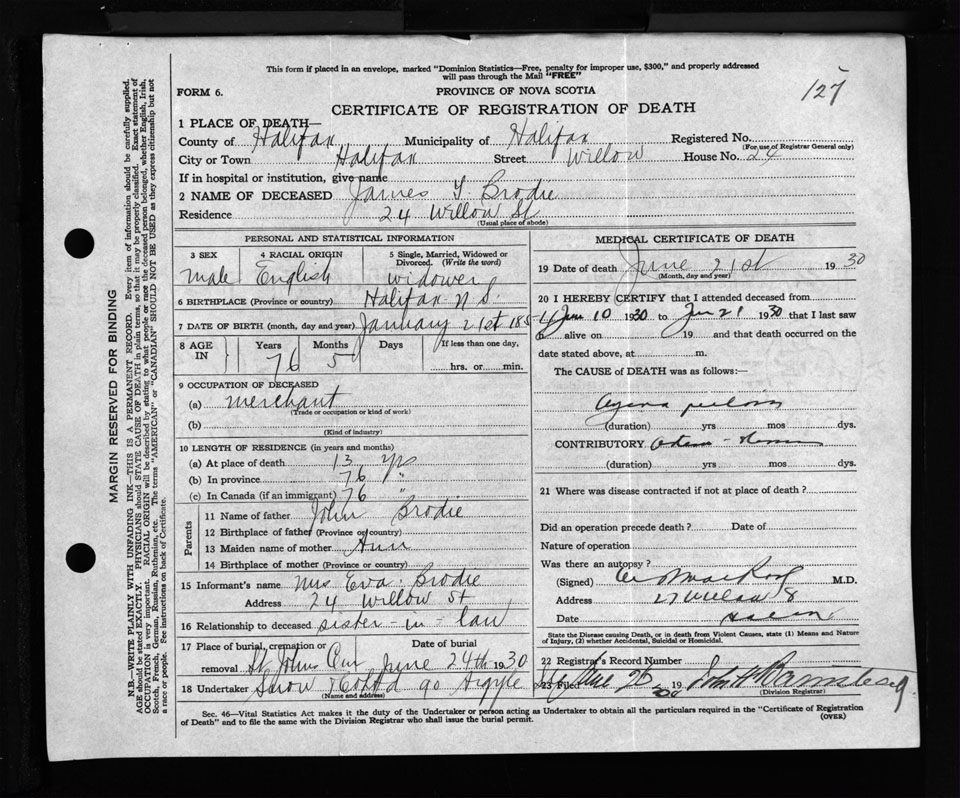 This form if placed in an envelope, marked "Dominion Statistics—Free, penalty for improper use, $300," and properly addressed
will pass through the Mail "FREE"
127
FORM 6.
PROVINCE OF NOVA SCOTIA
CERTIFICATE OF REGISTRATION OF DEATH
1 PLACE OF DEATH—
County of Halifax Municipality of Halifax Registered No.
(For use of Registrar General only)
City or Town Halifax Street Willow House No. 24
If in hospital or institution, give name
2 NAME OF DECEASED James Y. Brodie
Residence 24 Willow St
(Usual place of abode)
PERSONAL AND STATISTICAL INFORMATION
3 SEX 4 RACIAL ORIGIN 5 Single, Married, Widowed or
Divorced. (Write the word)
Male English widower
6 BIRTHPLACE (Province or country) Halifax N.S.
7 DATE OF BIRTH (month, day and year) January 21st 185
8 AGE IN Years Months Days If less than one day,
76 5 hrs. or min.
9 OCCUPATION OF DECEASED
(a) merchant
(Trade or occupation or kind of work)
(b)
(Kind of industry)
10 LENGTH OF RESIDENCE (in years and months)
(a) At place of death 13 yrs
(b) In province 76 "
(c) In Canada (if an immigrant) 76 "
Parents
11 Name of father John Brodie
12 Birthplace of father (Province or country)
13 Maiden name of mother Ann
14 Birthplace of mother (Province or country)
15 Informant's name Mrs Eva Brodie
Address 24 Willow St
16 Relationship to deceased sister-in-law
17 Place of burial, cremation or Date of burial
removal St. Johns Cem June 24th 1930
18 Undertaker Snow & Co Ltd 90 Argyle
(Name and address)
MEDICAL CERTIFICATE OF DEATH
19 Date of death June 21st 1930
(Month, day and year)
20 I HEREBY CERTIFY that I attended deceased from
Jun 10 1930 to Jun 21 1930 that I last saw
h alive on 19 and that death occurred on the
date stated above, at m.
The CAUSE of DEATH was as follows:—
(duration) yrs mos dys.
CONTRIBUTORY
(duration) yrs mos dys.
21 Where was disease contracted if not at place of death?
Did an operation precede death? Date of
Nature of operation
Was there an autopsy?
(Signed) M.D.
Address 27 Willow S
Date
State the Disease causing Death, or in death from Violent Causes, state (1) Means and Nature
of Injury, (2) whether Accidental, Suicidal or Homicidal.
22 Registrar's Record Number
23 Filed June 25 1930 John H Barnstead
(Division Registrar)
Sec. 46—Vital Statistics Act makes it the duty of the Undertaker or person acting as Undertaker to obtain all the particulars required in the "Certificate of Registration
of Death" and to file the same with the Division Registrar who shall issue the burial permit.
(OVER)
MARGIN RESERVED FOR BINDING
N.B.—WRITE PLAINLY WITH UNFADING INK—THIS IS A PERMANENT RECORD. Every item of information should be carefully supplied.
AGE should be stated EXACTLY. PHYSICIANS should STATE CAUSE OF DEATH in plain terms, so that it may be properly classified. Exact statement of
OCCUPATION is very important. RACIAL ORIGIN will be described by stating to what people or race the deceased person belonged, whether English, Irish,
Scotch, French, German, Russian, Ruthenian, etc. The terms "AMERICAN" or "CANADIAN" SHOULD NOT BE USED as they express citizenship but not
a race or people. See instructions on back of Certificate.